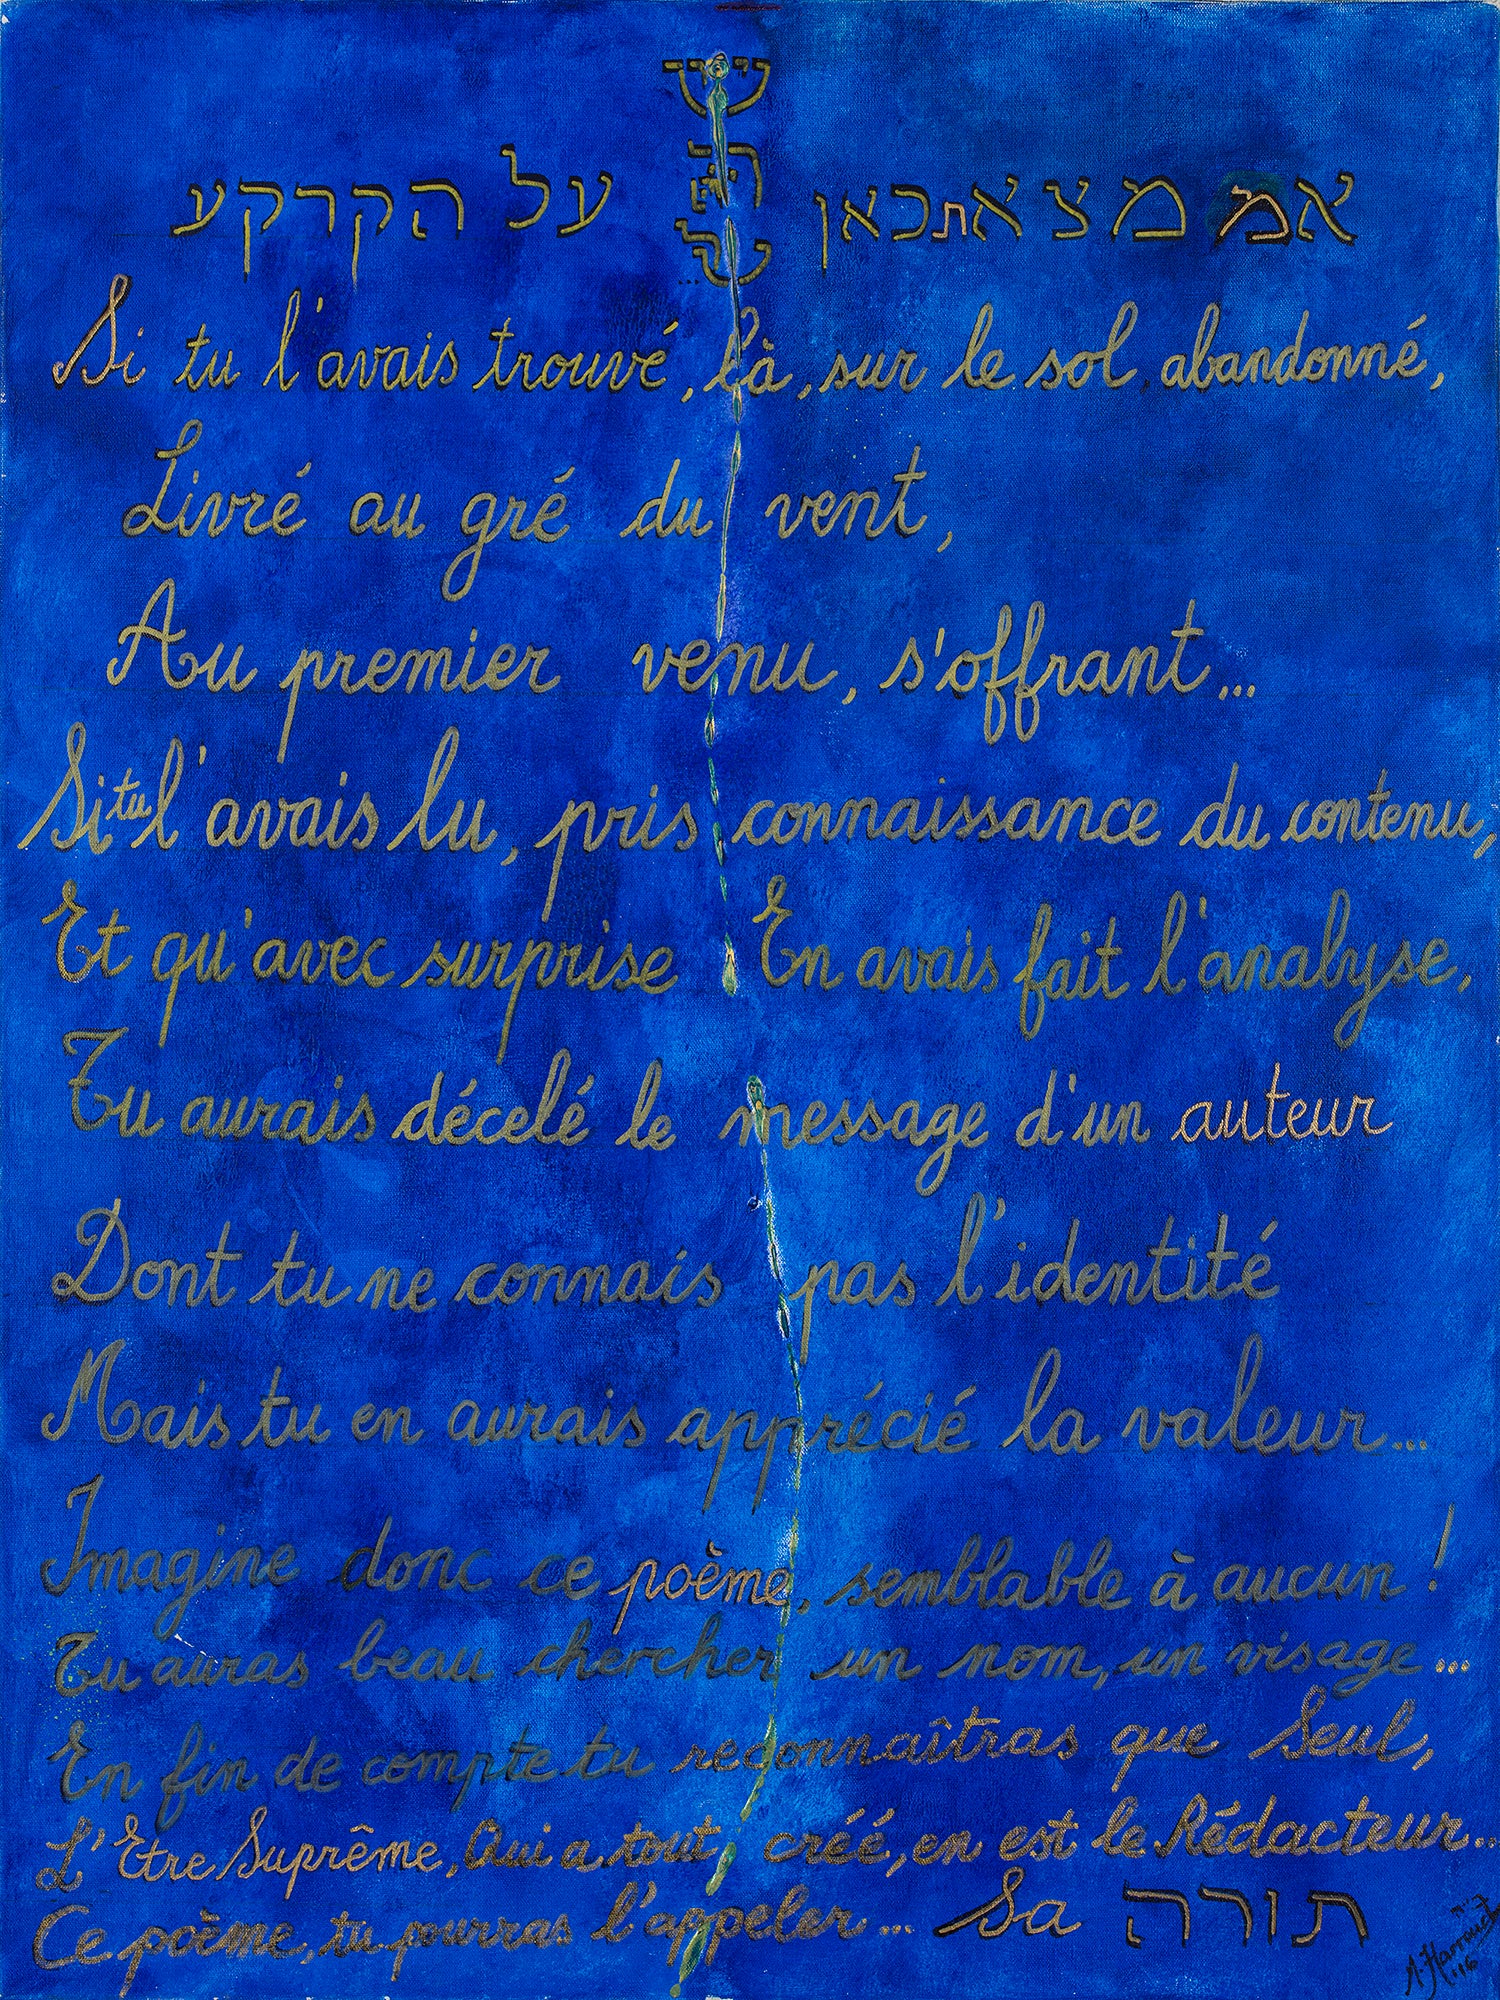 אם מצאת כאן על הקרקע
Si tu l'avais trouvé, là, sur le sol, abandonné,
Livré au gré du vent,
Au premier venu, s'offrant...
Si tu l'avais lu, pris connaissance du contenu,
Et qu'avec surprise En avais fait l'analyse,
Tu aurais décelé le message d'un auteur
Dont tu ne connais pas l'identité
Mais tu en aurais apprécié la valeur...
Imagine donc ce poème, semblable à aucun !
Tu auras beau chercher un nom, un visage...
En fin de compte tu reconnaîtras que Seul,
L'Etre Suprême, Qui a tout créé, en est le Rédacteur...
Ce poème, tu pourras l'appeler... Sa תורה